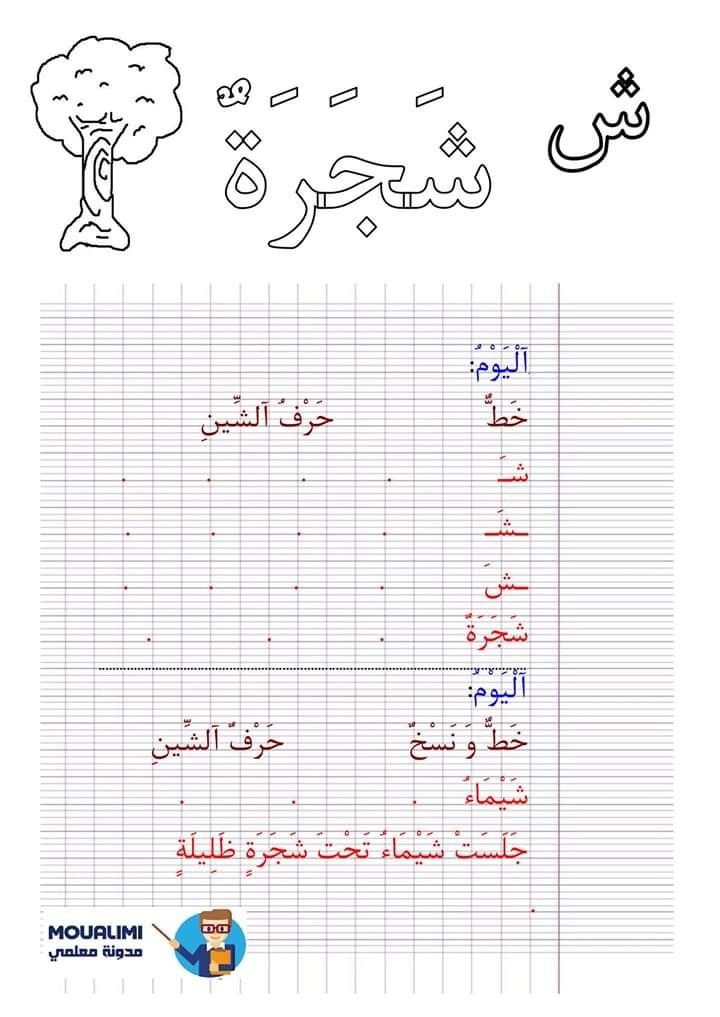 ش
شَجَرَةٌ
اَلْيَوْمُ:
خَطٌّ حَرْفُ اَلشِّينِ
شَـ . . . .
ـشَـ . . . .
ـشَ . . . .
شَجَرَةٌ . . .
اَلْيَوْمُ:
خَطٌّ وَ نَسْخٌ حَرْفٌ اَلشِّينِ
شَيْمَاءُ . . .
جَلَسَتْ شَيْمَاءُ تَحْتَ شَجَرَةٍ ظَلِيلَةٍ
.
MOUALIMI
مدونة معلمي